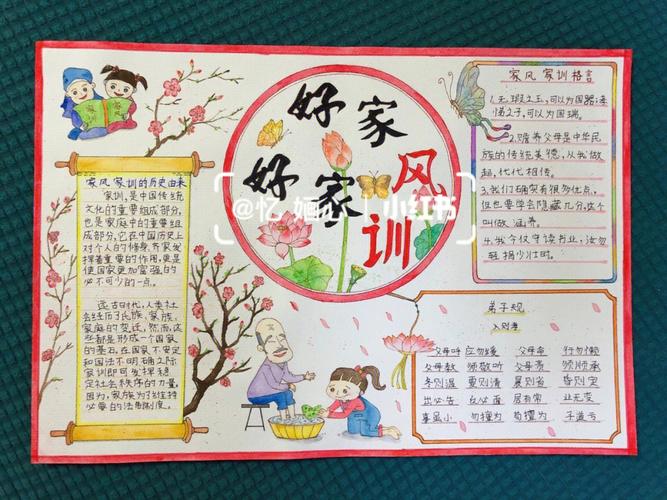 好家风
好家训
@忆 婳
小红书
家风家训的历史由来
家训,是中国传统
文化的重要组成部分,
也是家庭中的重要组
成部分,它在中国历史上
对个人的修身、齐家发
挥着重要的作用,更是
使国家更加富强的
必不可少的一点。
远古时代,人类社
会经历了氏族、家族、
家庭的变迁,然而,这
些都是形成一个国家
的基石,在国家不安定
和国法不明确之际
家训即可发挥稳
定社会秩序的力量,
因为,家族为了维持
必要的法制制度。
家风家训格言
1.无瑕之玉,可以为国器;孝
悌之子,可以为国瑞。
2.赡养父母是中华民
族的传统美德,从我做
起,代代相传。
3.我们确实有很多优点,
但也要学会隐藏几分,这个
叫做 涵养。
4.我今仅守读书业,汝勿
轻捐少壮时。
弟子规
入则孝
父母呼 应勿缓 父母命 行勿懒
父母教 须敬听 父母责 须顺承
冬则温 夏则凊 晨则省 昏则定
出必告 反必面 居有常 业无变
事虽小 勿擅为 苟擅为 子道亏